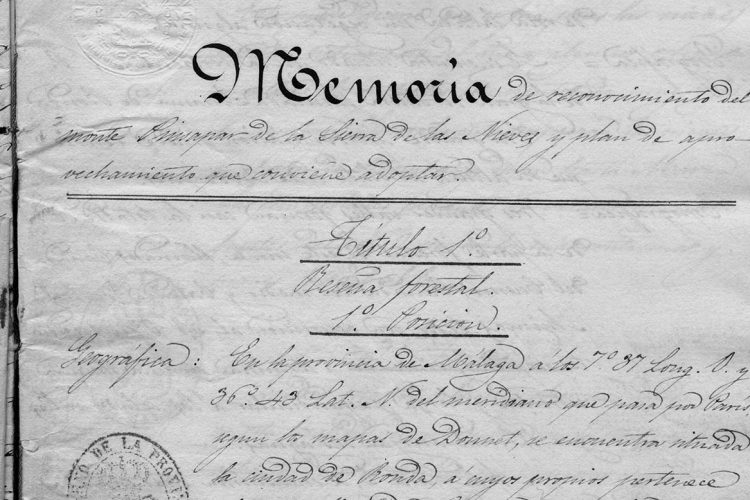 Memoria de reconocimiento del
monte Pinsapar de la Sierra de las Nieves y plan de apro-
vechamiento que conviene adoptar.
Título 1º
Reseña forestal.
1º Posicion.
Geográfica: En la provincia de Málaga á los 7º 37 Long. O. y
36º 43 Lat. N. del meridiano que pasa por París
segun los mapas de Donnet, se encuentra situada
la ciudad de Ronda á cuyos propios pertenece
DE LA PROV